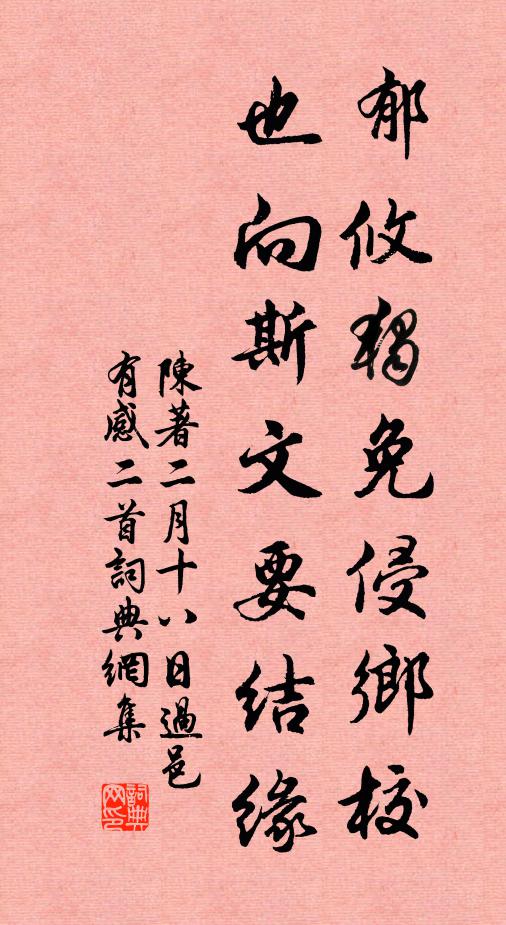 郁攸獨免侵鄉校
也向斯文要结緣
陳著二月十八日過邑
有感二首詞典網集
詞典
网印